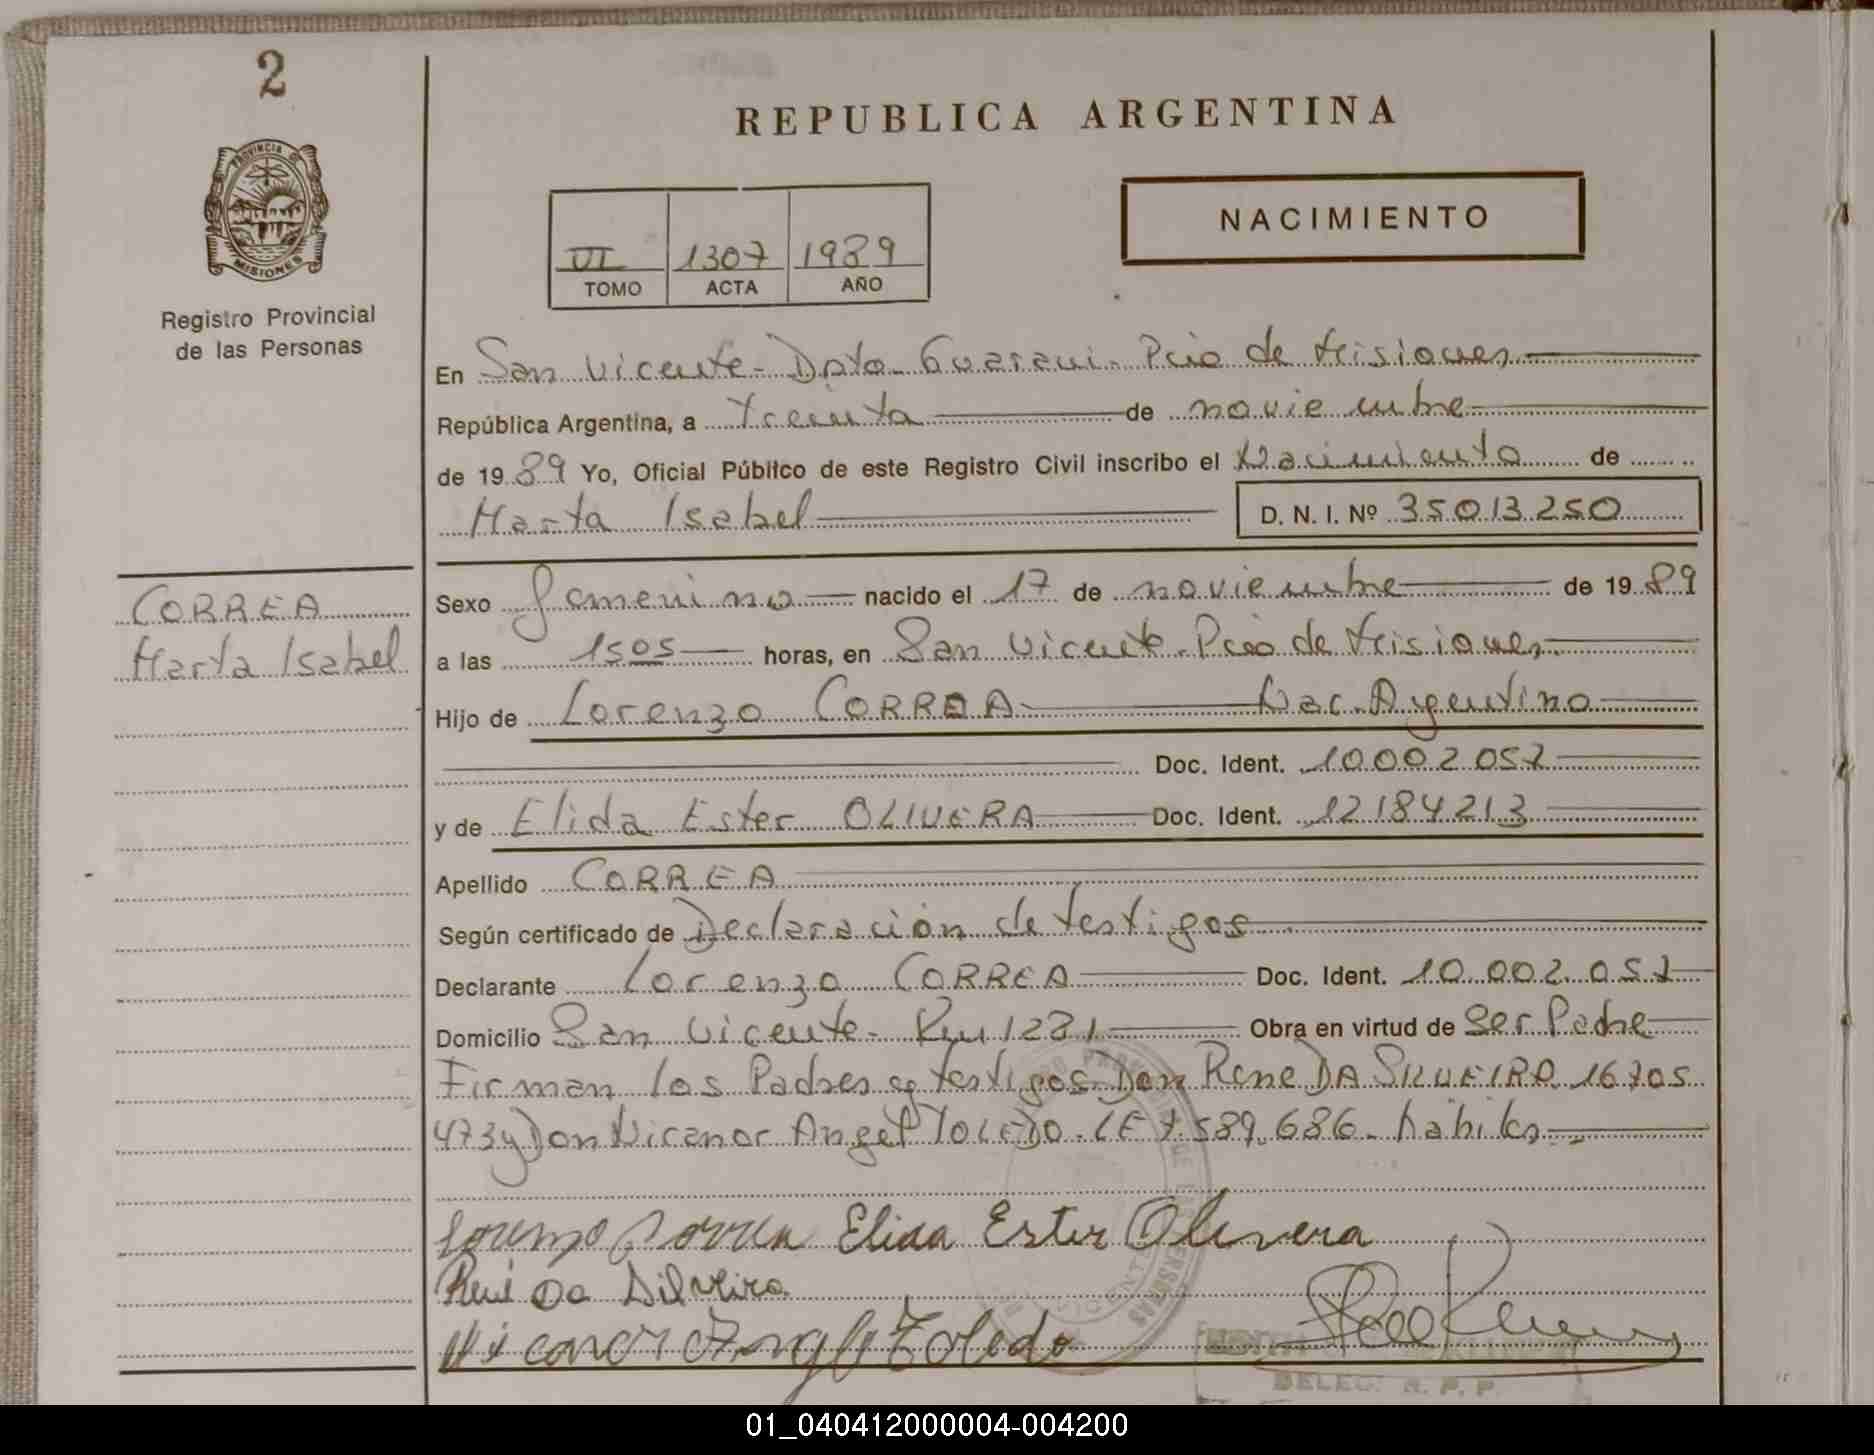 2
REPUBLICA ARGENTINA
PROVINCIA DE
MISIONES
Registro Provincial
de las Personas
VI 1307 1989
TOMO ACTA AÑO
NACIMIENTO
En San Vicente - Dpto. Guarani - Pcia de Misiones
República Argentina, a treinta de noviembre
de 1989 Yo, Oficial Público de este Registro Civil inscribo el Nacimiento de
Marta Isabel D. N. I. Nº 35013250
CORREA
Marta Isabel
Sexo femenino nacido el 17 de noviembre de 1989
a las 1505 horas, en San Vicente - Pcia de Misiones
Hijo de Lorenzo CORREA Nac. Argentino
Doc. Ident. 10002057
y de Elida Ester OLIVERA Doc. Ident. 12184213
Apellido CORREA
Según certificado de Declaración de testigos
Declarante Lorenzo CORREA Doc. Ident. 10.002.057
Domicilio San Vicente - Km 1281 Obra en virtud de Ser Padre
Firman los Padres y testigos Don Rene DA SILVEIRA 16705
473 y Don Nicanor Angel TOLEDO - LE 7.589.686 - habiles
Lorenzo Correa Elida Ester Olivera
René Da Silveira
Nicanor Angel Toledo
DELEG. R. P. P.
01_040412000004-004200